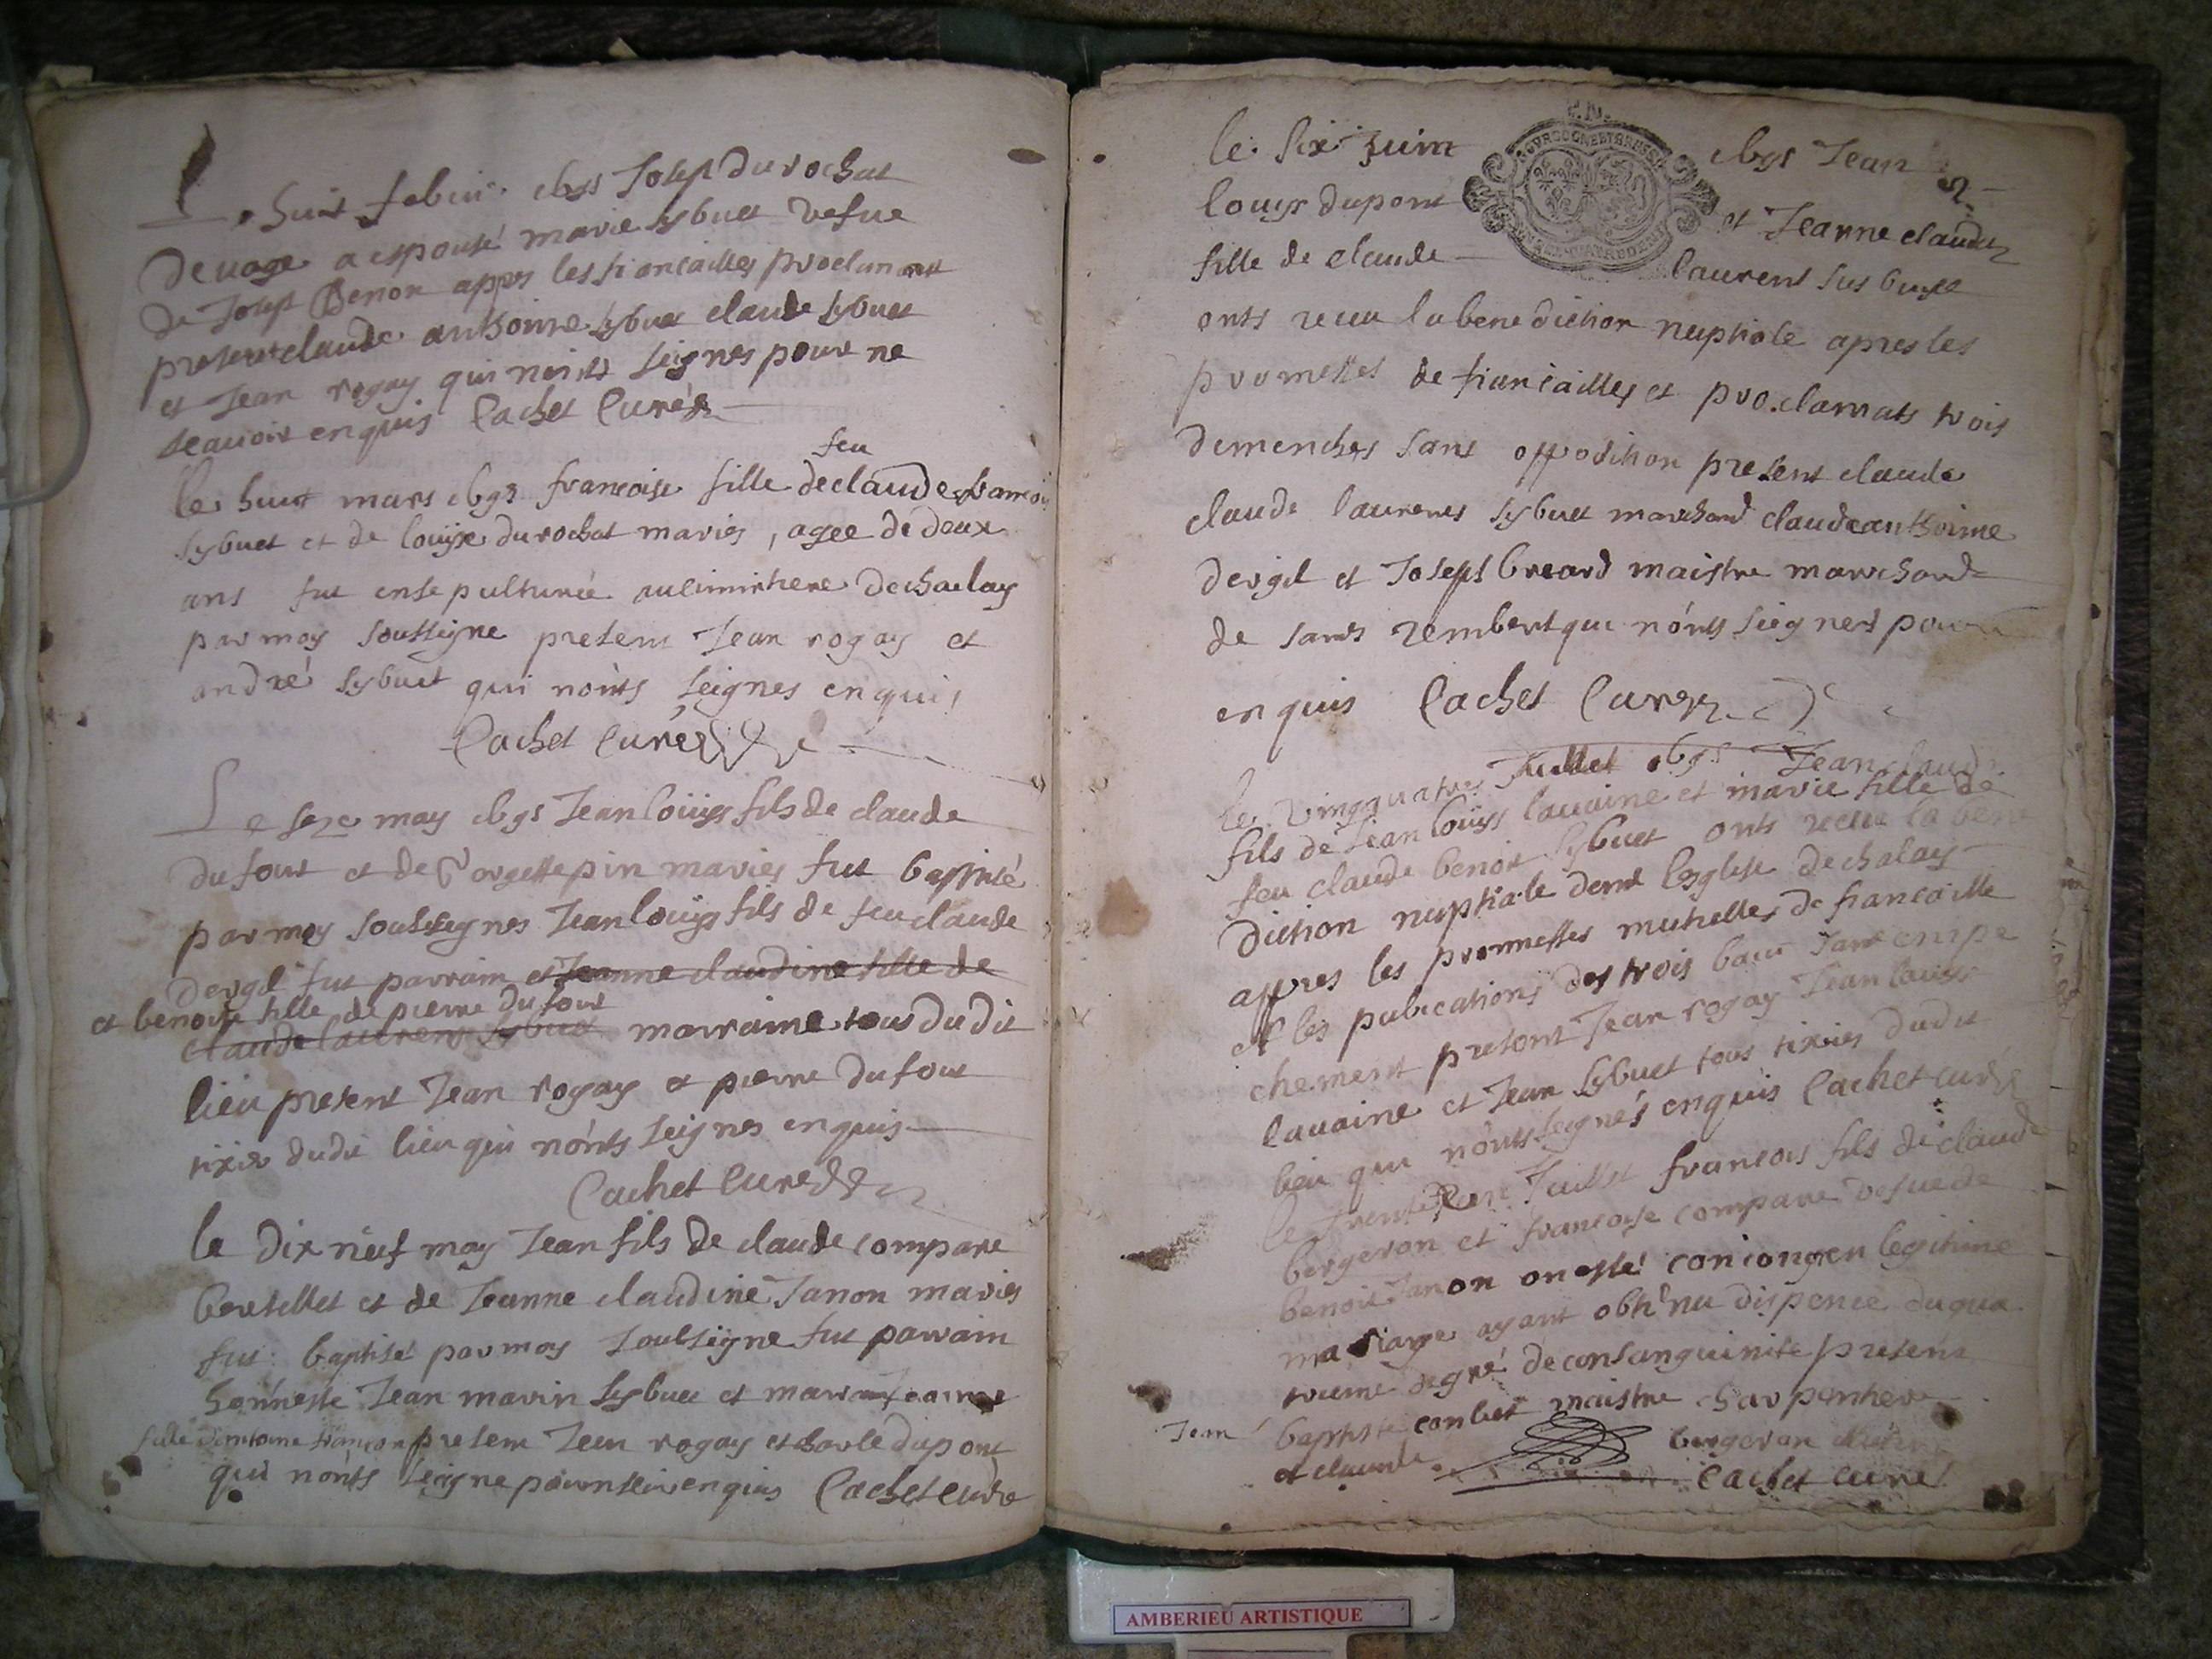 Le huit febvri cbgs Josept durochat
devage a espousé marie sybuet vefue
de Josept Benon appres les fiancailles proclamat
present claude anthoine sybuet claude sybuet
et Jean rogay qui nonts seignes pour ne
scauoir enquis Cachet Curé
feu
le huit mars cbgs francoise fille de claude francois
sybuet et de louyse durochat mariés, agee de deux
ans fut ensepulturée au cimintiere de chalay
par moy soussigne present Jean rogay et
andré sybuet qui nonts seignes enquis
Cachet Curé
Le seze may cbgs Jean loüys fils de claude
dufour et de Gorgette pin mariés fut baptisé
par moy soubseignes Jean loüys fils de feu claude
devgil fut parrain et Jeanne claudine fille de
et benoite fille de pierre dufour
claude laurent sybuet marraine tous du dit
lieu present Jean rogay et pierre dufour
tixier dudit lieu qui nonts seignes enquis
Cachet Curé
le dix neuf may Jean fils de claude compare
bertellet et de Jeanne claudine Janon mariés
fut baptisé par moy soubseigne fut parrain
honneste Jean marin sybuet et marr Jeanne
fille d'antoine present Jean rogay et charle dupont
qui nonts seigne enquis Cachet curé
le six Juin cbgs Jean
louys dupont et Jeanne claudin
fille de claude laurent sus
onts receu la benediction nuptiale apres les
promesses de fiancailles et proclamats trois
demenches sans opposition present claude
claude laurens sybuet marchand claude anthoine
devgil et Josept breard maistre marchand
de sants rembert qui nonts seignes pour
enquis Cachet Curé
le vingquatre Juillet cbgs Jean claude
fils de Jean loüys lavaine et marie fille de
feu claude benoit sybuet onts receu la bene
diction nuptiale dent lesglise de chalay
appres les prommesses mutuelles de fiancaille
et les publications des trois bans sans empe
chement present Jean rogay Jean louys
lavaine et Jean sybuet tous tixies dudit
lieu qui nonts seignés enquis Cachet curé
le trente Juillet francois fils de claude
bergeron et francoyse compare vefue de
benoit Janon on esté conioingt en legitime
mariage ayant obtenu dispence du qua
trieme degré de consanguinite present
Jean baptiste conbet maistre charpentier
et claude bergeron
Cachet curé
AMBERIEU ARTISTIQUE